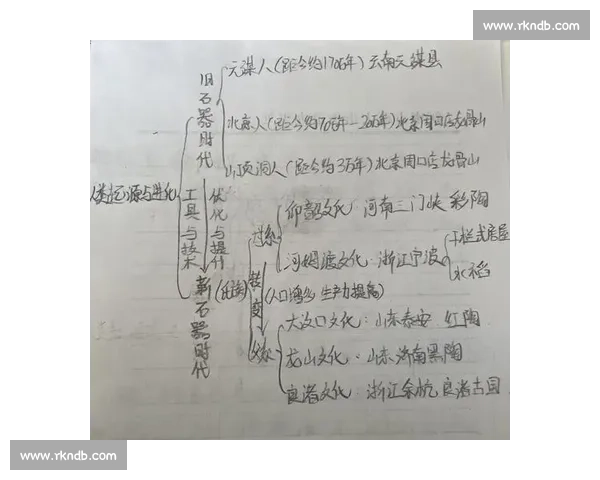 www.rkndb.com
元谋人(距今约170万年)云南元谋县
旧石器时代
北京人(距今约70万年-20万年)北京周口店龙骨山
山顶洞人(距今约3万年)北京周口店龙骨山
人类起源与进化
工具与技术
优化与提升
仰韶文化:河南三门峡 彩陶
母系
河姆渡文化:浙江宁波
干栏式房屋
水稻
新石器时代
(氏族)
转变
(人口增多 生产力提高)
大汶口文化:山东泰安 红陶
父系
龙山文化:山东济南黑陶
良渚文化:浙江余杭 良渚古国
www.rkndb.com